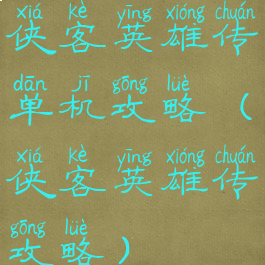 xiá kè yīng xióng chuán
侠客英雄传
dān jī gōng lüè
单机攻略（
xiá kè yīng xióng chuán
侠客英雄传
gōng lüè
攻略）